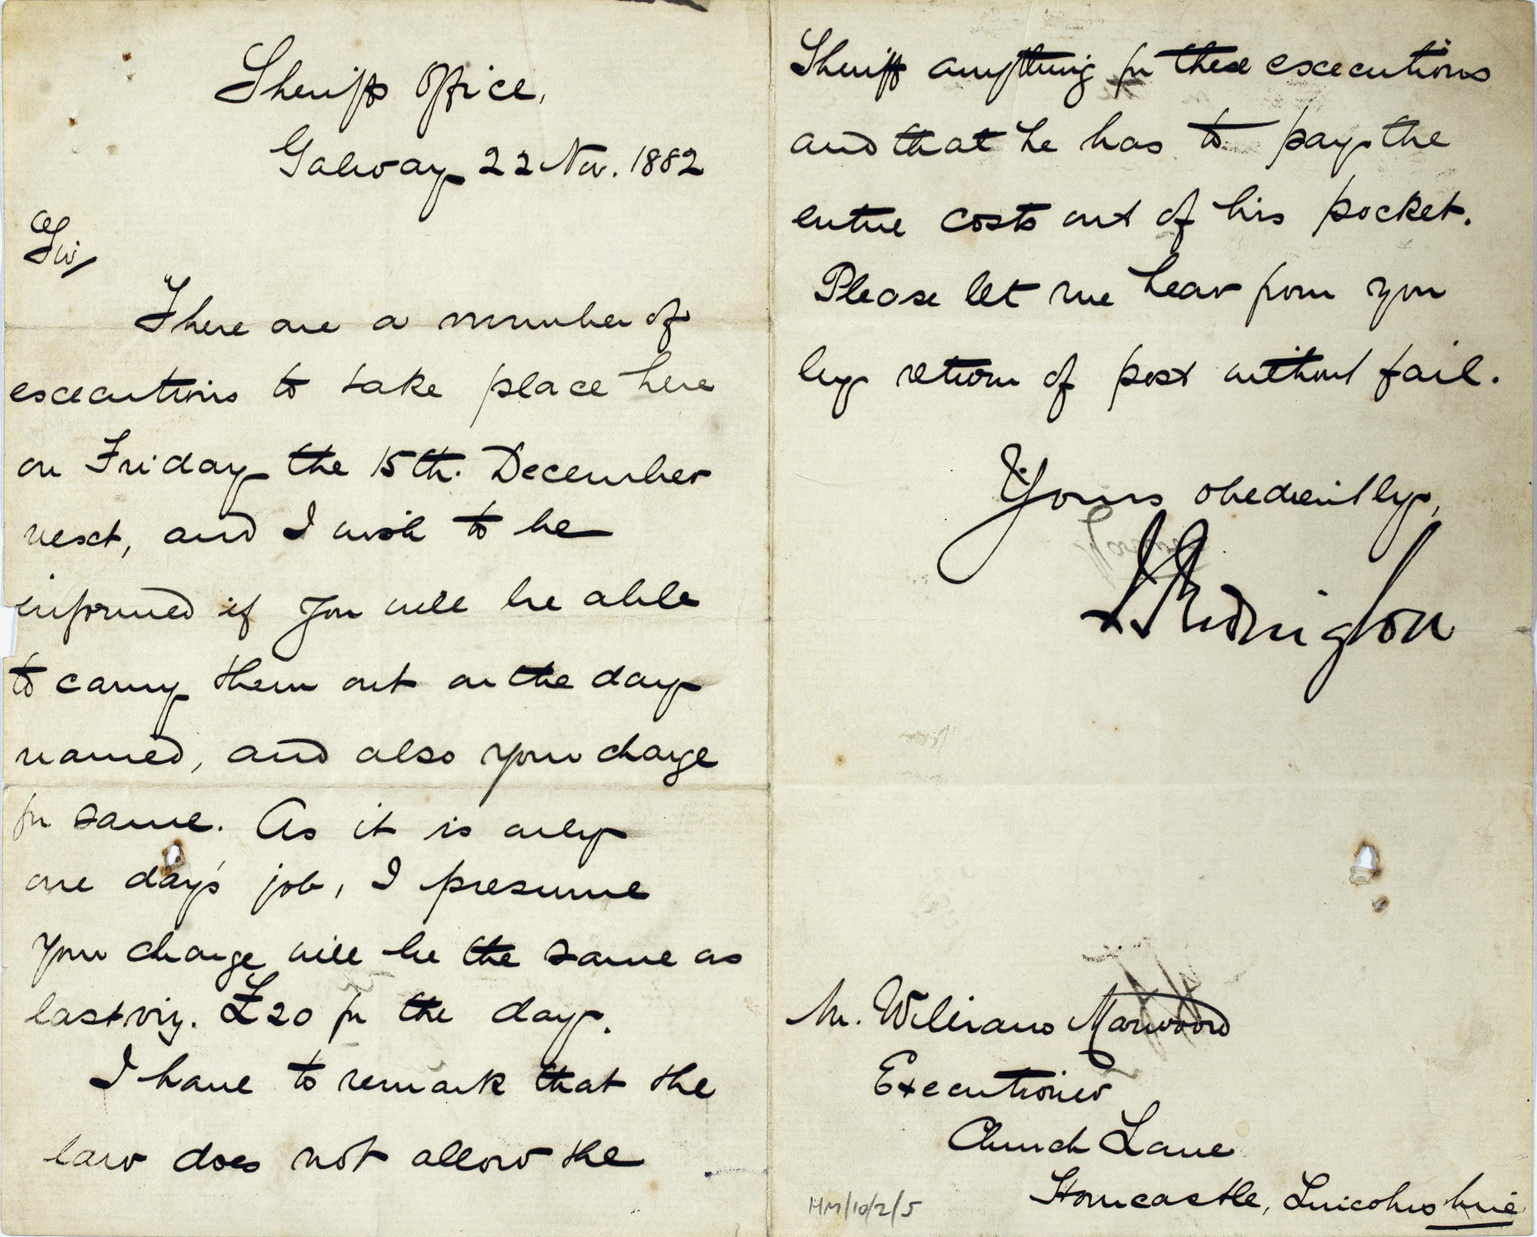 Sheriff's Office,
Galway 22 Nov. 1882
Sir,
There are a number of
executions to take place here
on Friday the 15th. December
next, and I wish to be
informed if you will be able
to carry them out on the day
named, and also your charge
for same. As it is only
one day's job, I presume
your charge will be the same as
last viz. £20 for the day.
I have to remark that the
law does not allow the
Sheriff anything for these executions
and that he has to pay the
entire costs out of his pocket.
Please let me hear from you
by return of post without fail.
Yours obediently,
Redington
Mr. William Marwood
Executioner
Church Lane
Horncastle, Lincolnshire
HM/10/2/5